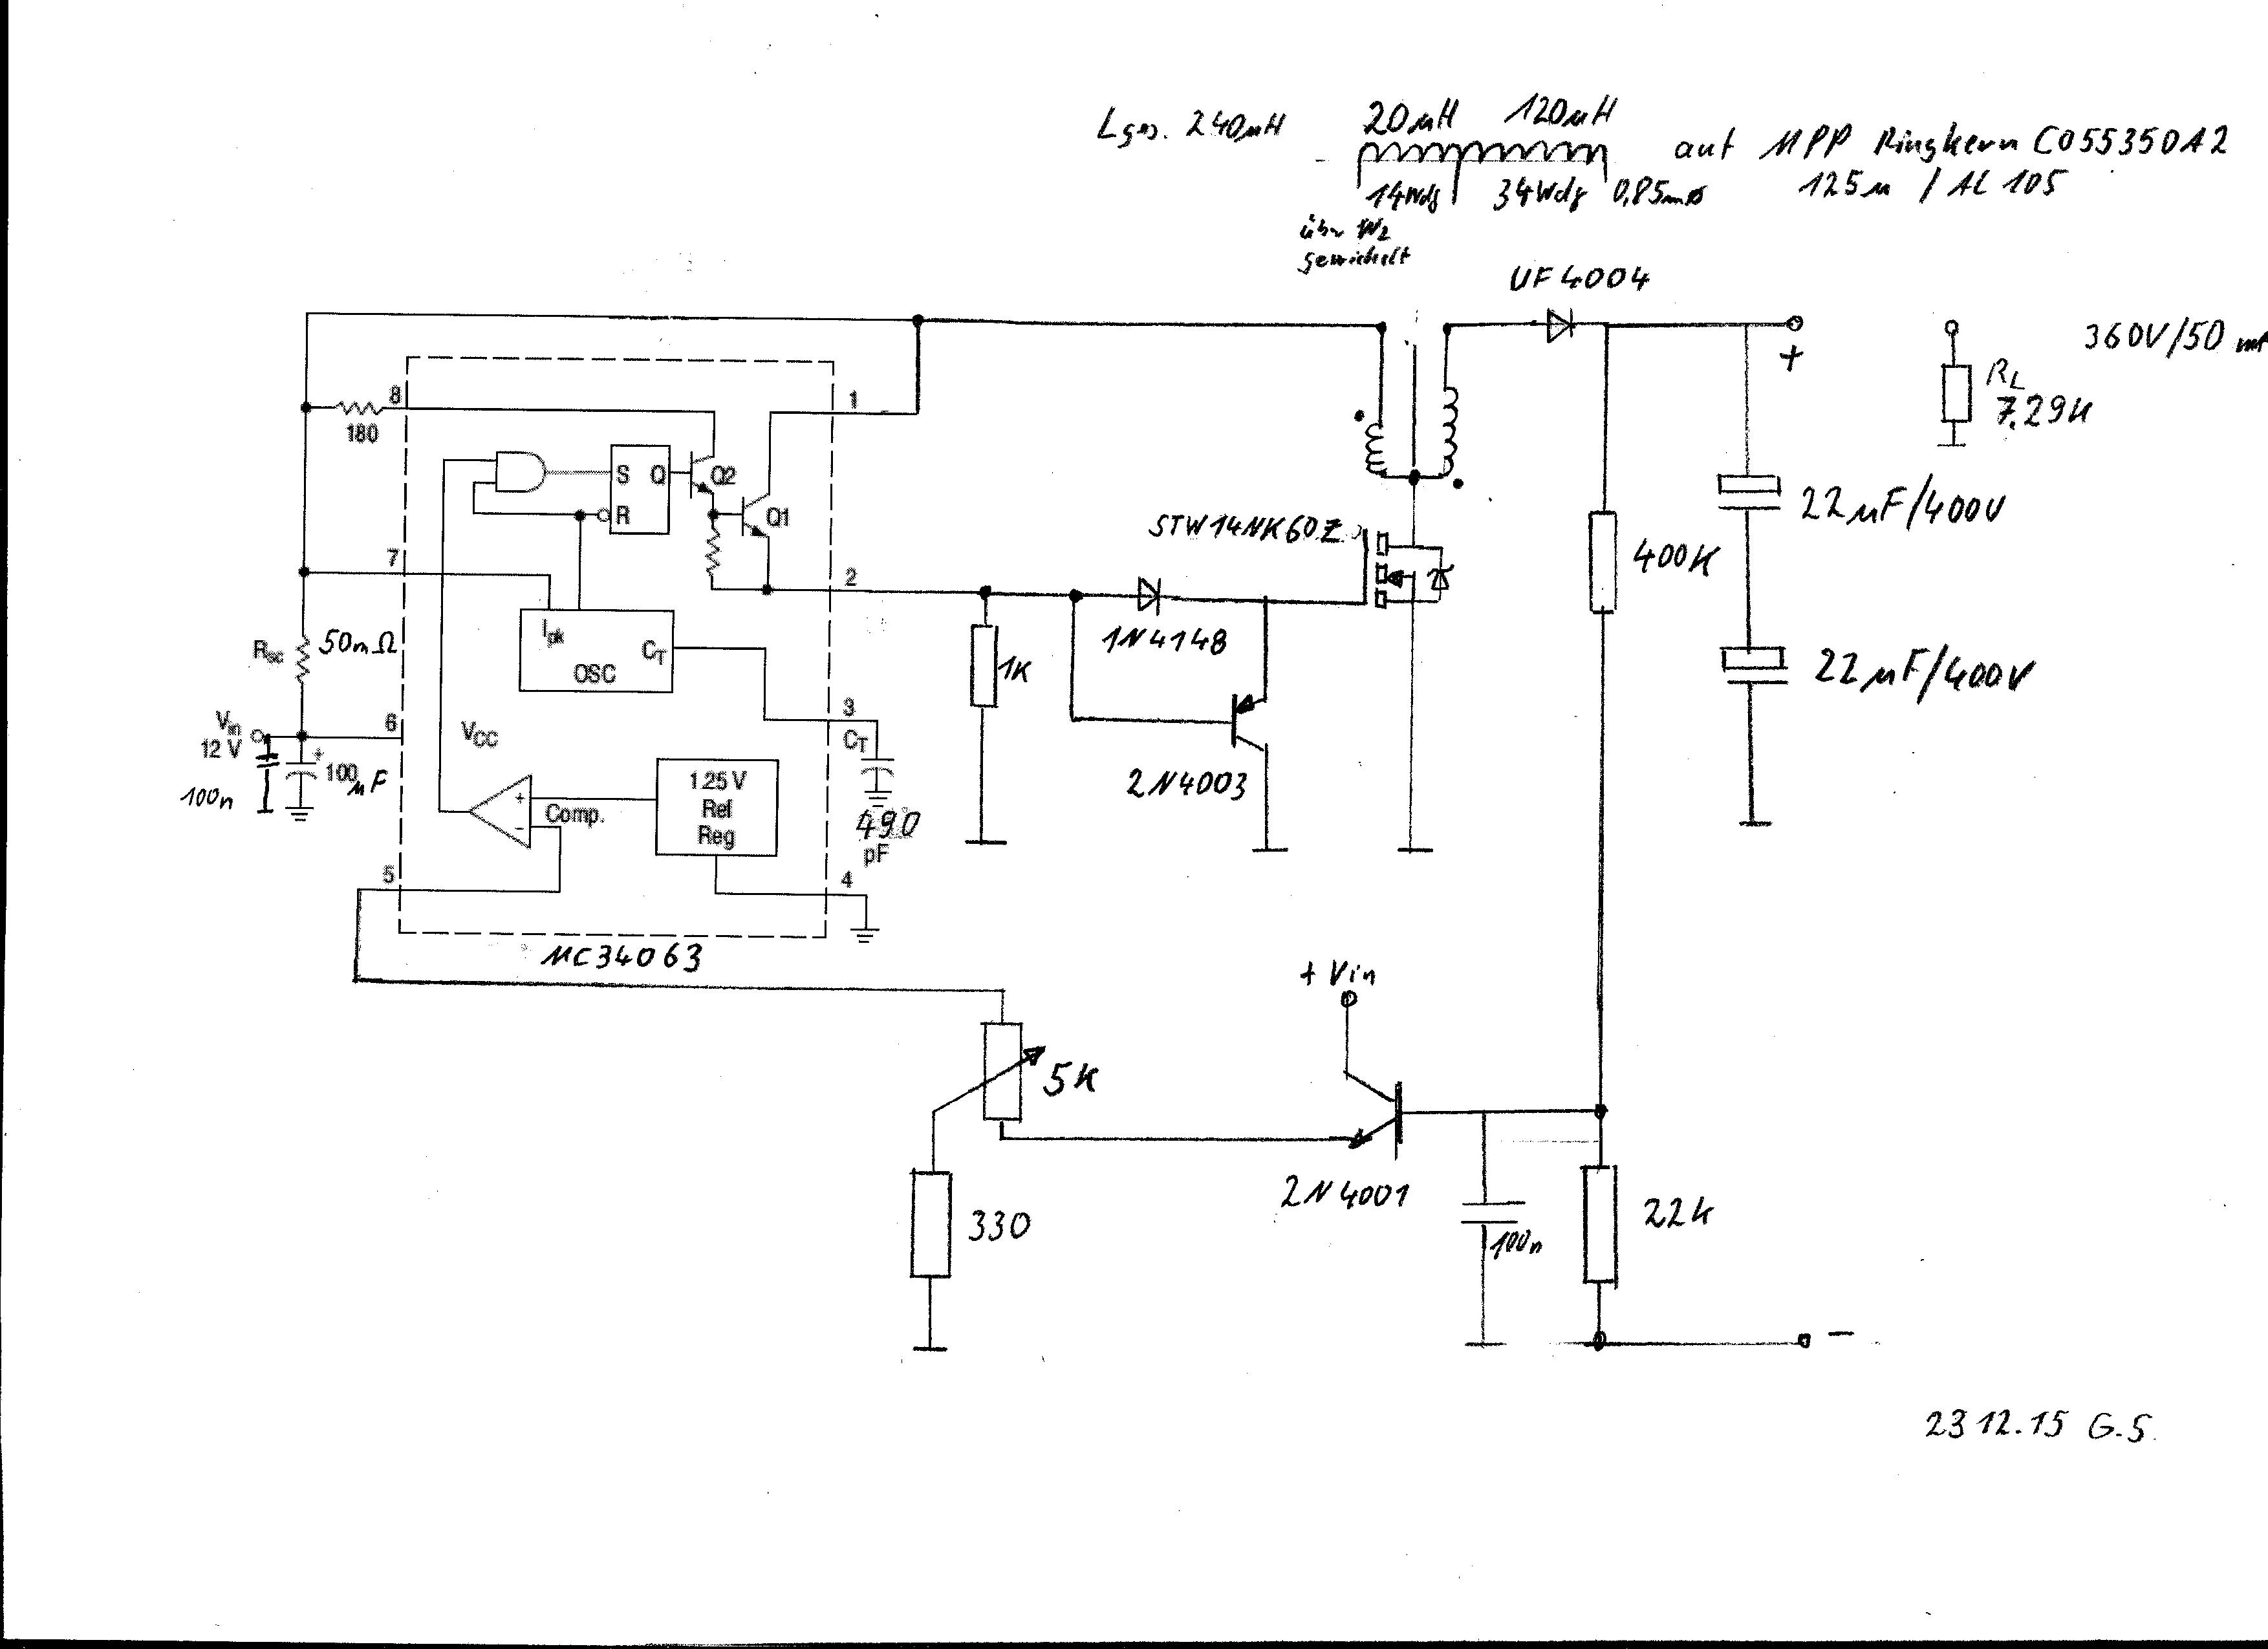 Lges. 240µH
20µH 120µH
auf MPP Ringkern C055350A2
14Wdg 34Wdg 0,85mø
125µ / AL 105
über W2
gewickelt
UF4004
+
360V/50
RL
7.29K
8
180
1
S Q
R
Q2
Q1
22µF/400V
STW14NK60Z
400K
7
2
Ipk
OSC
CT
1N4148
1K
Rsc 50mΩ
22µF/400V
Vin
12 V
6
VCC
3
CT
+
100µF
100n
1.25 V
Ref
Reg
2N4003
+
-
Comp.
490
pF
5
4
MC34063
+ Vin
5K
2N4001
330
100n
22k
-
23 12.15 G.S.